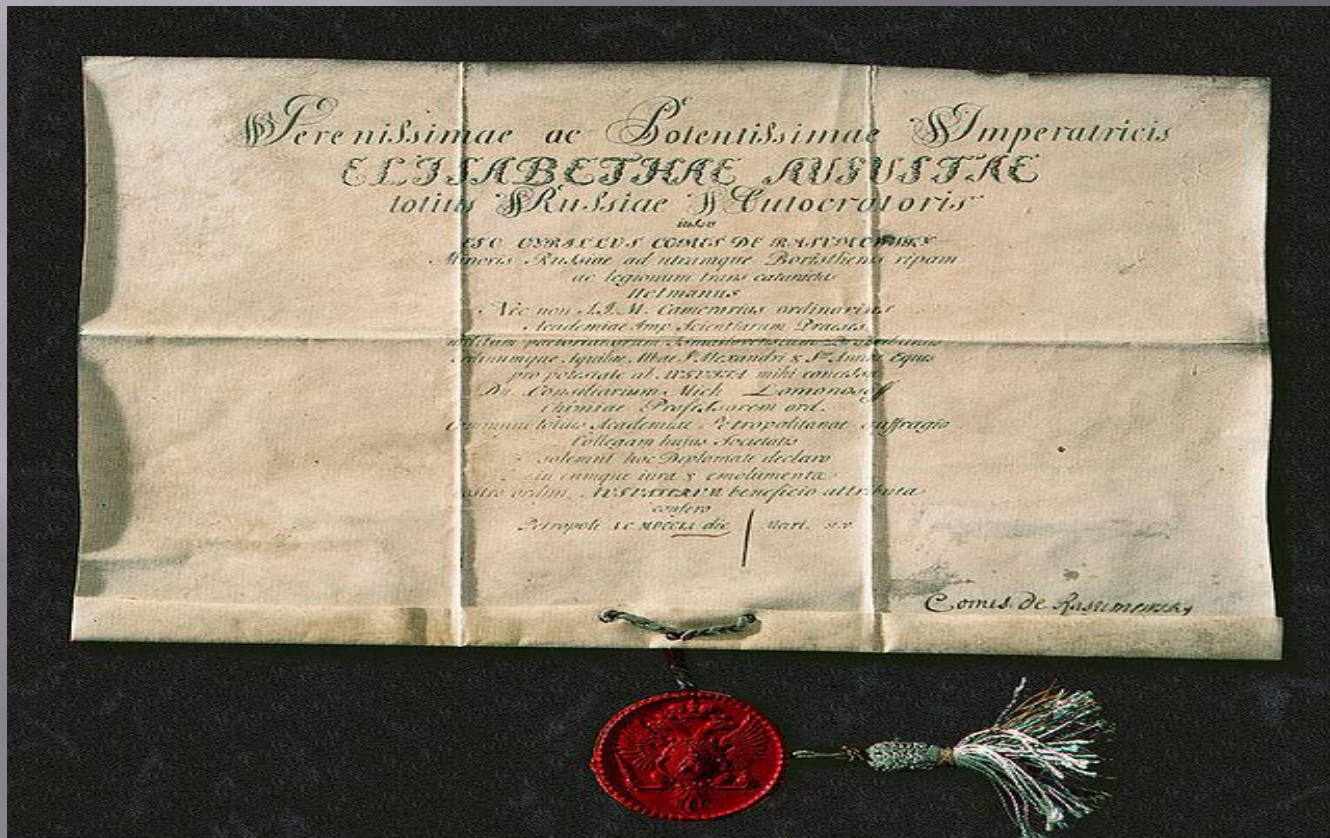 Serenissimae ac Potentissimae Imperatricis
ELISABETHAE AUGUSTAE
totius Russiae Autocratoris
iussu
EGO CYRILLUS COMES DE RASUMOWSKY
Minoris Russiae ad utramque Boristhenis ripam
ac legionum trans cataractas
Hetmanus
Nec non S.I.M. Camerarius ordinarius
Academiae Imp Scientiarum Praeses
ordinumque Aquilae Albae S. Alexandri & Annae Eques
pro potestate ab AUGUSTA mihi concessa
Consiliarium Mich Lomonosoff
Chimiae Professorem ord.
communi totius Academiae Petropolitanae suffragio
Collegam huius Societatis
solemni hoc Diplomate declaro
in eumque iura & emolumenta
nostro ordini AUGUSTARUM beneficio attributa
confero
Petropoli MDCCLI die Mart.
Comes de Rasumowsky